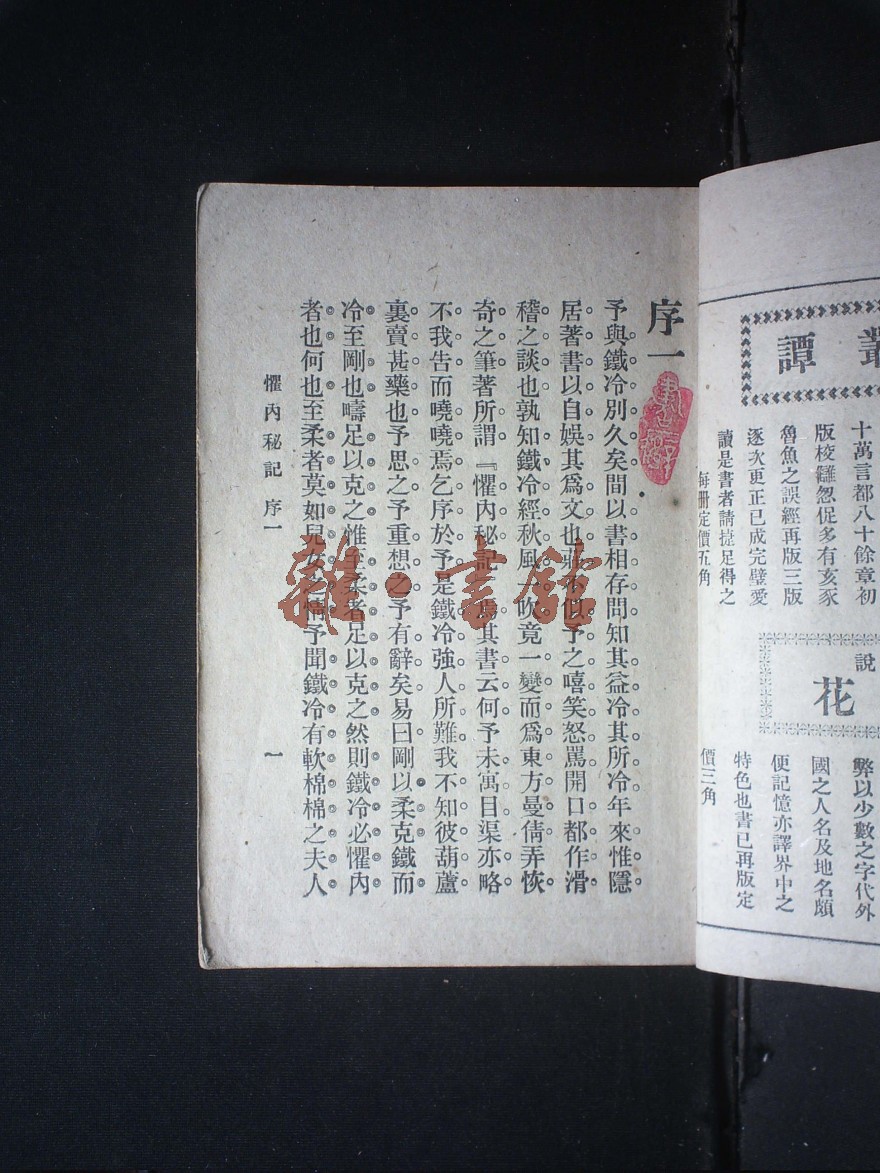 叢
譚
十萬言都八十餘章初
版校讎忽促多有亥豕
魯魚之誤經再版三版
逐次更正已成完璧愛
讀是書者請捷足得之
每册定價五角
說
花
弊以少數之字代外
國之人名及地名頗
便記憶亦譯界中之
特色也書已再版定
價三角
序一
予與鐵冷別久矣間以書相存問知其益冷其所冷年來惟隱
居著書以自娛其爲文也莊不似予之嘻笑怒罵開口都作滑
稽之談也孰知鐵冷經秋風一吹竟一變而爲東方曼倩弄恢
奇之筆著所謂『懼內秘記』焉其書云何予未寓目渠亦略
不我告而嘵嘵焉乞序於予是鐵冷強人所難我不知彼葫蘆
裏賣甚藥也予思之予重想之予有辭矣易曰剛以柔克鐵而
冷至剛也疇足以克之惟至柔者足以克之然則鐵冷必懼內
者也何也至柔者莫如兒女之情予聞鐵冷有軟棉棉之夫人
懼內秘記 序一
一
雜·書館